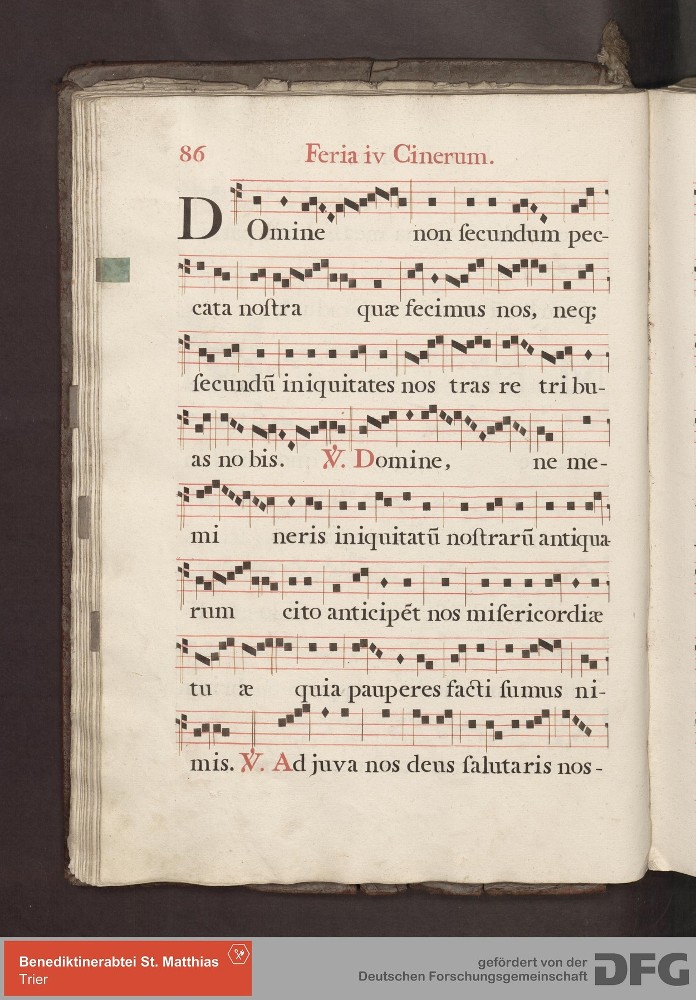 86 Feria iv Cinerum.
DOmine non ſecundum pec-
cata noſtra quæ fecimus nos, neq;
ſecundū iniquitates nos tras re tribu-
as nobis. ℣. Domine, ne me-
mi neris iniquitatū noſtrarū antiqua
rum cito anticipēt nos miſericordiæ
tu æ quia pauperes facti ſumus ni-
mis. ℣. Adjuva nos deus ſalutaris nos-
Benediktinerabtei St. Matthias
Trier
gefördert von der
Deutschen Forschungsgemeinschaft
DFG